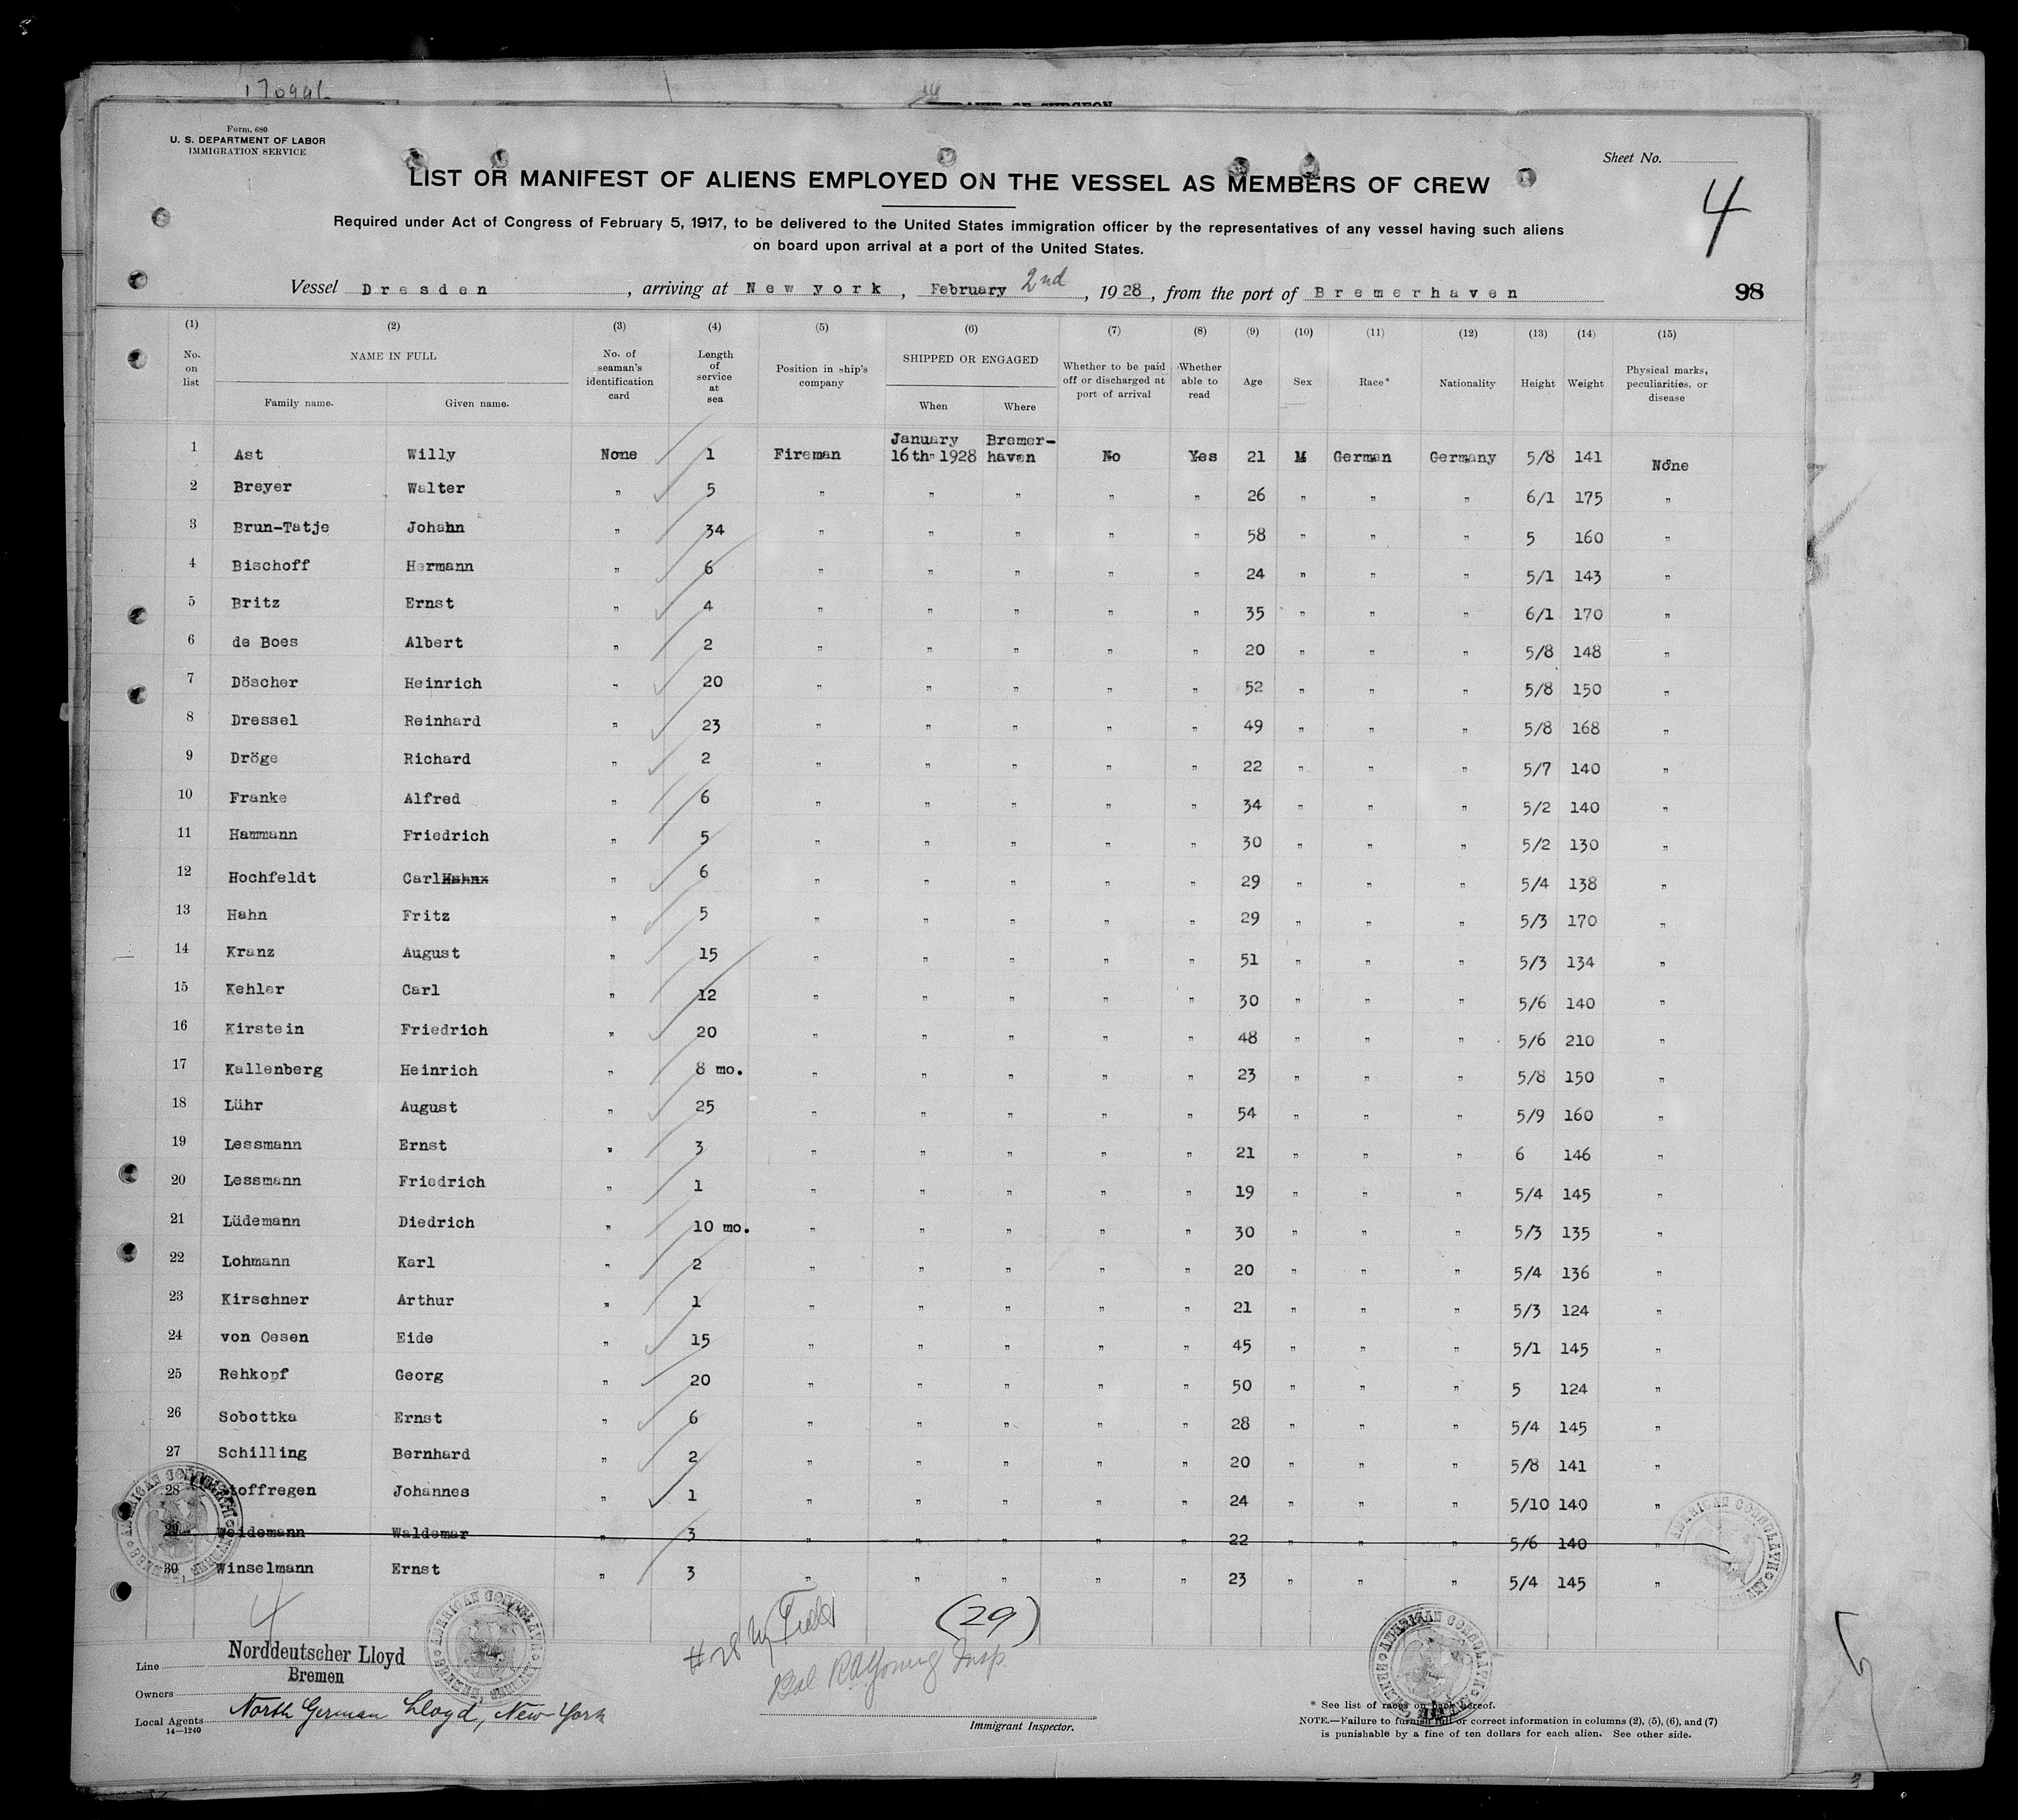 Form. 680
U. S. DEPARTMENT OF LABOR
IMMIGRATION SERVICE
Sheet No.
4
LIST OR MANIFEST OF ALIENS EMPLOYED ON THE VESSEL AS MEMBERS OF CREW
Required under Act of Congress of February 5, 1917, to be delivered to the United States immigration officer by the representatives of any vessel having such aliens
on board upon arrival at a port of the United States.
Vessel Dresden, arriving at New york, February 2nd, 1928, from the port of Bremerhaven 98
(1) (2) (3) (4) (5) (6) (7) (8) (9) (10) (11) (12) (13) (14) (15)
No. on list NAME IN FULL Family name. Given name. No. of seaman's identification card Length of service at sea Position in ship's company SHIPPED OR ENGAGED When Where Whether to be paid off or discharged at port of arrival Whether able to read Age Sex Race* Nationality Height Weight Physical marks, peculiarities, or disease
1 Ast Willy None 1 Fireman January 16th 1928 Bremer-haven No Yes 21 M German Germany 5/8 141 None
2 Breyer Walter " 5 " " " " " 26 " " " 6/1 175 "
3 Brun-Tatje Johahn " 34 " " " " " 58 " " " 5 160 "
4 Bischoff Hermann " 6 " " " " " 24 " " " 5/1 143 "
5 Britz Ernst " 4 " " " " " 35 " " " 6/1 170 "
6 de Boes Albert " 2 " " " " " 20 " " " 5/8 148 "
7 Döscher Heinrich " 20 " " " " " 52 " " " 5/8 150 "
8 Dressel Reinhard " 23 " " " " " 49 " " " 5/8 168 "
9 Dröge Richard " 2 " " " " " 22 " " " 5/7 140 "
10 Franke Alfred " 6 " " " " " 34 " " " 5/2 140 "
11 Hammann Friedrich " 5 " " " " " 30 " " " 5/2 130 "
12 Hochfeldt Carl " 6 " " " " " 29 " " " 5/4 138 "
13 Hahn Fritz " 5 " " " " " 29 " " " 5/3 170 "
14 Kranz August " 15 " " " " " 51 " " " 5/3 134 "
15 Kehler Carl " 12 " " " " " 30 " " " 5/6 140 "
16 Kirstein Friedrich " 20 " " " " " 48 " " " 5/6 210 "
17 Kallenberg Heinrich " 8 mo. " " " " " 23 " " " 5/8 150 "
18 Lühr August " 25 " " " " " 54 " " " 5/9 160 "
19 Lessmann Ernst " 3 " " " " " 21 " " " 6 146 "
20 Lessmann Friedrich " 1 " " " " " 19 " " " 5/4 145 "
21 Lüdemann Diedrich " 10 mo. " " " " " 30 " " " 5/3 135 "
22 Lohmann Karl " 2 " " " " " 20 " " " 5/4 136 "
23 Kirschner Arthur " 1 " " " " " 21 " " " 5/3 124 "
24 von Oesen Eide " 15 " " " " " 45 " " " 5/1 145 "
25 Rehkopf Georg " 20 " " " " " 50 " " " 5 124 "
26 Sobottka Ernst " 6 " " " " " 28 " " " 5/4 145 "
27 Schilling Bernhard " 2 " " " " " 20 " " " 5/8 141 "
28 Stoffregen Johannes " 1 " " " " " 24 " " " 5/10 140 "
29 Weidemann Waldemar " 3 " " " " " 22 " " " 5/6 140 "
30 Winselmann Ernst " 3 " " " " " 23 " " " 5/4 145 "
(29)
4
#28
Line Norddeutscher Lloyd
Bremen
Owners
Local Agents North German Lloyd, New-York
14—1240
Insp.
Immigrant Inspector.
* See list of races on back hereof.
NOTE.—Failure to furnish full or correct information in columns (2), (5), (6), and (7)
is punishable by a fine of ten dollars for each alien. See other side.